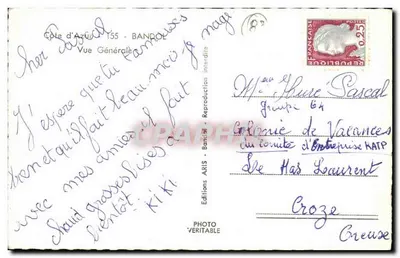 Côte d'Azur 155 - BANDOL
Vue Générale
cher Pascal
J'espère que tu t'amuses
bien et qu'il fait beau moi je nage
avec mes amies il fait
chaud grosses bises à
bientôt KIKI
Editions ARIS - Bandol - Reproduction interdite
PHOTO
VERITABLE
REPUBLIQUE
FRANCAISE
0,25
Pascal
groupe G4
Colonie de Vacances
du comité d'Entreprise
Le Mas Laurent
Croze
Creuse